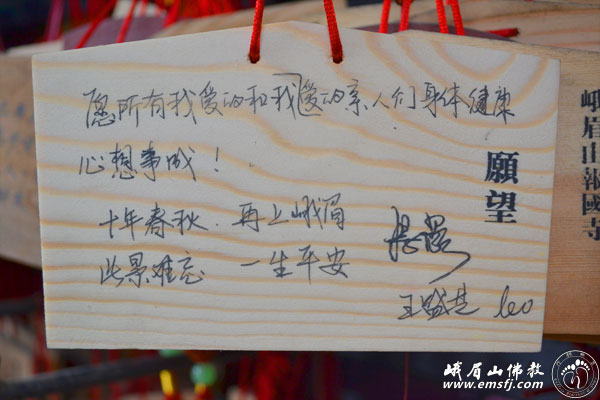 愿所有我爱的和我爱的亲人们身体健康
心想事成！
十年春秋．再上峨眉
此景难忘 一生平安
王盛楚 leo
願望
峨眉山報國寺
峨眉山佛教
www.emsfj.com